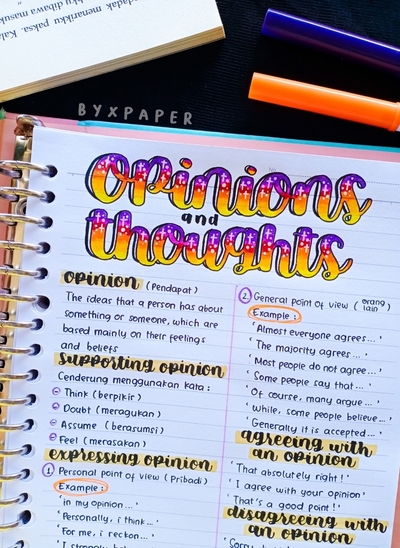 dadak menarikku paksa. Kala
ku dibawa masuk
BYXPAPER
opinions
and
thoughts
opinion (Pendapat)
The ideas that a person has about
something or someone, which are
based mainly on their feelings
and beliefs
supporting opinion
Cenderung menggunakan kata :
Think (berpikir)
Doubt (meragukan)
Assume (berasumsi)
Feel (merasakan)
expressing opinion
1 Personal point of view (Pribadi)
Example :
'in my opinion ...'
'Personally, i think ...'
'For me, i reckon ...'
2. General point of view (orang lain)
Example :
'Almost everyone agrees ...'
'The majority agrees ...'
'Most people do not agree ...'
'Some people say that ...'
'Of course, many argue ...'
'while, some people believe ...'
'Generally it is accepted ...'
agreeing with
an opinion
'That absolutely right !'
'I agree with your opinion'
'That's a good point !'
disagreeing with
an opinion